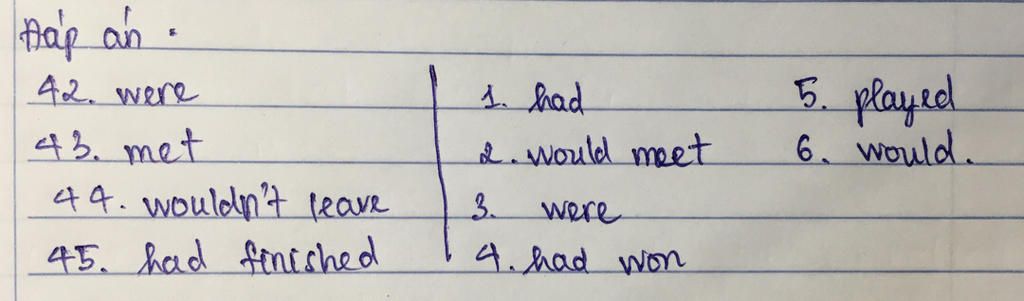 Đáp án.
42. were
43. met
44. wouldn't leave
45. had finished
1. had
2. would meet
3. were
4. had won
5. played
6. would.